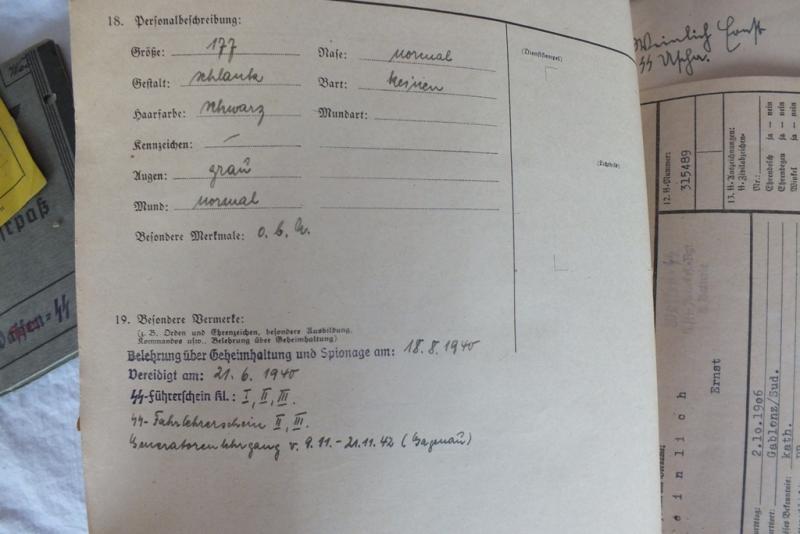 18. Personalbeschreibung:
Größe: 177
Gestalt: schlank
Haarfarbe: schwarz
Kennzeichen: —
Augen: grau
Mund: normal
Besondere Merkmale: o. b. M.
Nase: normal
Bart: keinen
Mundart:
(Dienststempel)
19. Besondere Vermerke:
(z. B. Orden und Ehrenzeichen, besondere Ausbildung,
Kommandos usw., Belehrung über Geheimhaltung)
Belehrung über Geheimhaltung und Spionage am: 18.8.1940
Vereidigt am: 21.6.1940
SS-Führerschein Kl.: I, II, III.
SS-Fahrlehrerschein II, III.
Generatorenlehrgang v. 9.11.-21.11.42 (Gagenau)
Weinlich Ernst
SS Uscha.
12. SS-Nummer:
315489
13. SS-Auszeichnungen:
SS-Zivilabzeichen-
Nr.:
Ehrendolch ja — nein
Ehrendegen ja — nein
Winkel ja — nein
Ernst
einlich
2.10.1906
Gablonz/Sud.
kath.
rpaß
Waffen-SS